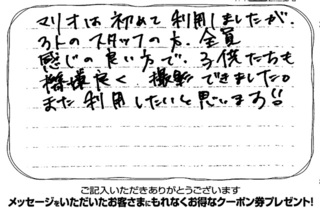 マリオは初めて利用しましたが、
3人のスタッフの方、全員
感じの良い方で、子供たちも
機嫌良く撮影できました。
また利用したいと思います!!
ご記入いただきありがとうございます
メッセージをいただいたお客さまにもれなくお得なクーポン券プレゼント!